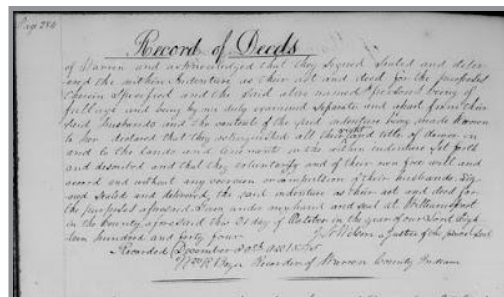 Page 284
Record of Deeds
of Warren and acknowledged that they signed Sealed and deliv-
ered the within Indenture as their act and deed for the purposes
therein Specified and the said above named being of
full age and being by me duly examined Separate and apart from their
said Husbands and the contents of the said indenture being made known
to her declared that they relinquished all their right and title of dower in
and to the Lands and tenements in the within indenture set forth
and described and that they voluntarily and of their own free will and
accord and without any coercion or compulsion of their husbands. Sig-
ned Sealed and delivered the said indenture as their act and deed for
the purposes aforesaid Given under my hand and seal at Williamsport
in the County aforesaid this 21 day of October in the year of our Lord Eigh-
teen hundred and forty four Wilson a Justice of the peace Seal
Recorded December 20th 
Wm R Boyer Recorder of Warren County Indiana